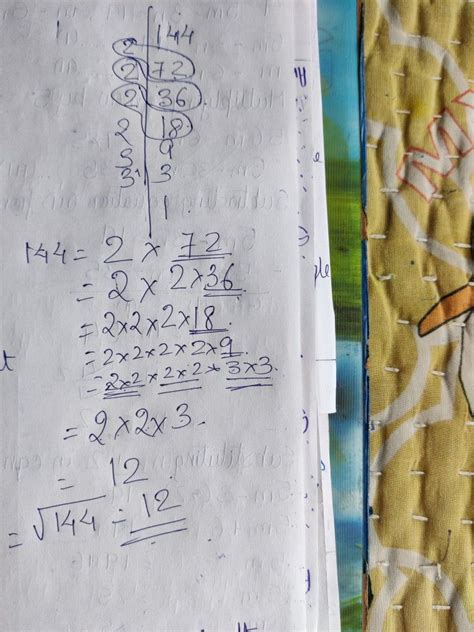 2 | 144
2 | 72
2 | 36
2 | 18
3 | 9
3 | 3
1
144 = 2 × 72
= 2 × 2×36
= 2×2×2×18
= 2×2×2×2×9
= 2×2 × 2×2 × 3×3
= 2×2×3.
= 12
= √144 = 12
MY